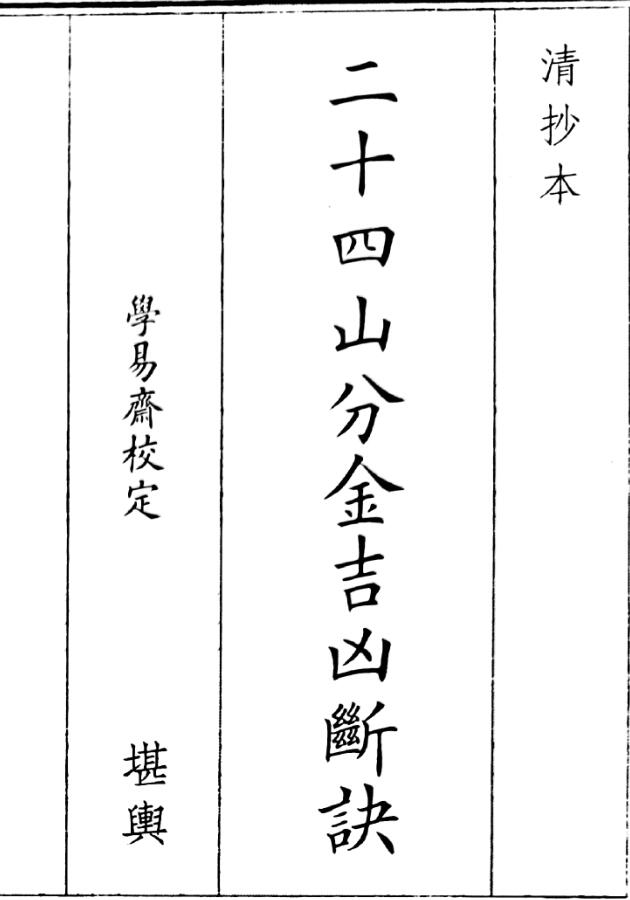 清抄本
二十四山分金吉凶斷訣
學易齋校定
堪輿